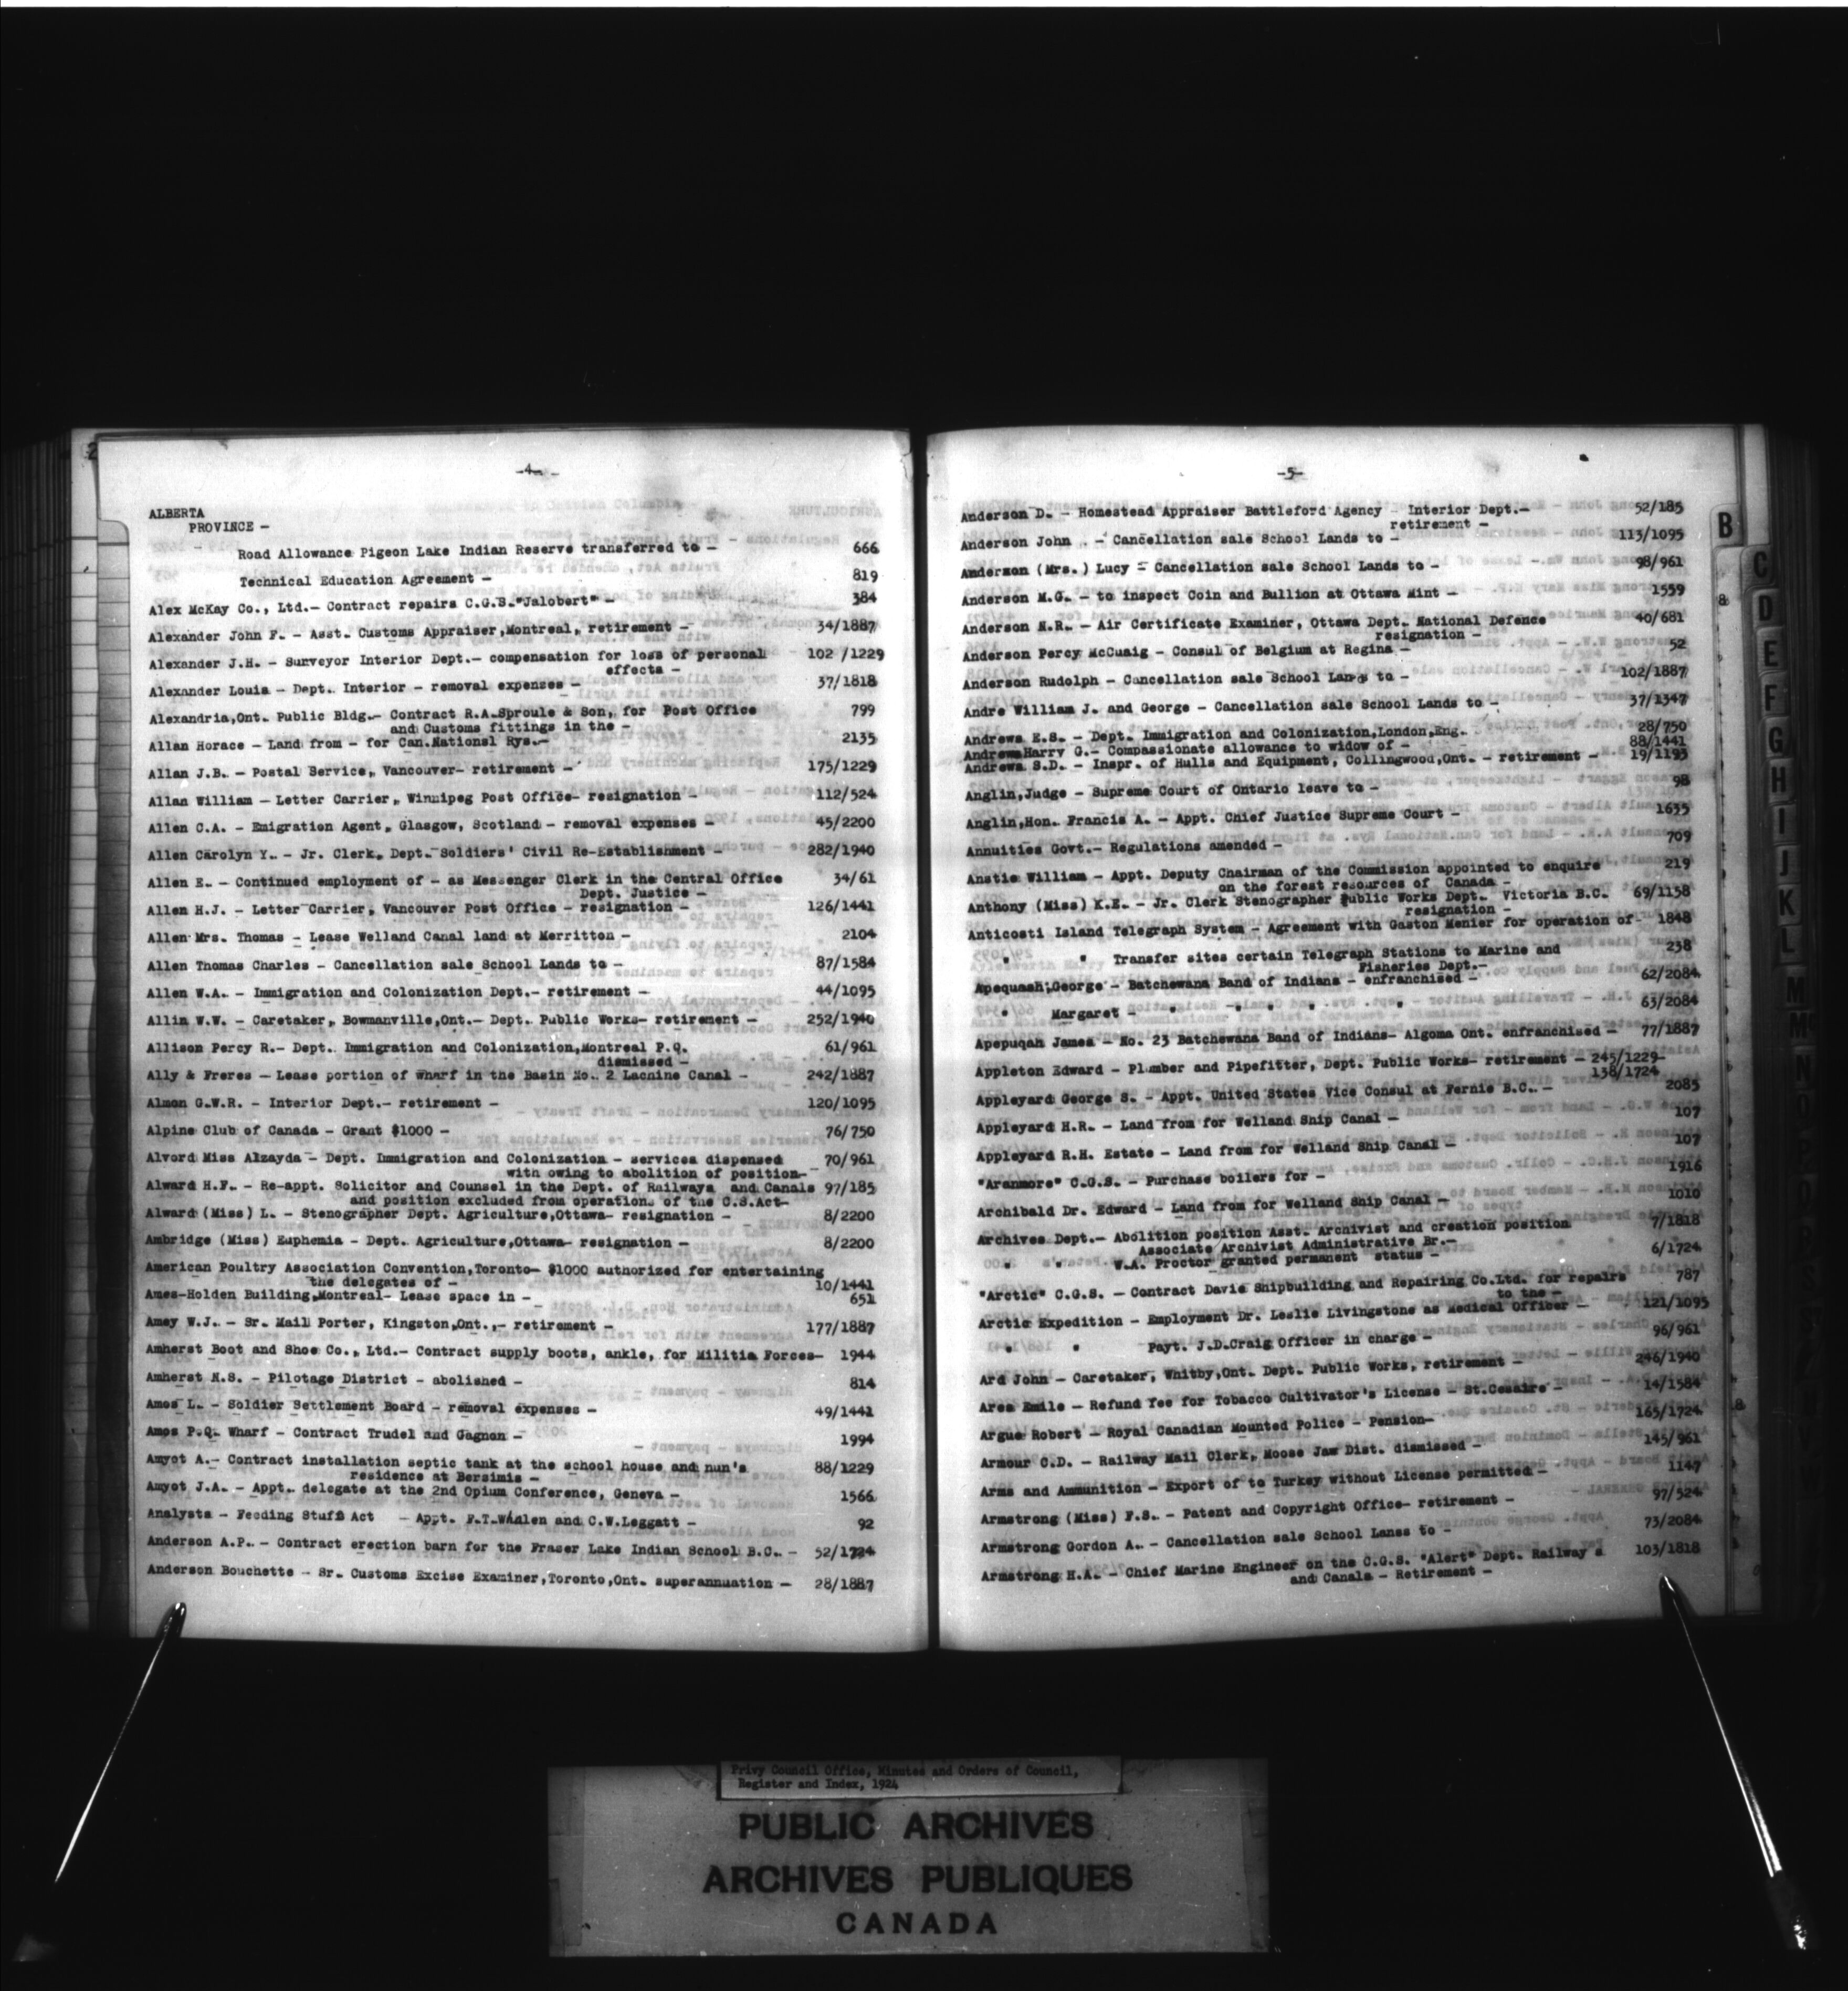 -4-
ALBERTA
PROVINCE -
Road Allowance Pigeon Lake Indian Reserve transferred to - 666
Technical Education Agreement - 819
Alex McKay Co., Ltd.- Contract repairs C.G.S."Jalobert" - 384
Alexander John F. - Asst. Customs Appraiser,Montreal, retirement - 34/1887
Alexander J.H. - Surveyor Interior Dept.- compensation for loss of personal 102 /1229
effects -
Alexander Louis - Dept. Interior - removal expenses - 37/1818
Alexandria,Ont. Public Bldg.- Contract R.A.Sproule & Son, for Post Office 799
and Customs fittings in the -
Allan Horace - Land from - for Can.National Rys.- 2135
Allan J.B. - Postal Service, Vancouver- retirement - 175/1229
Allan William - Letter Carrier, Winnipeg Post Office- resignation - 112/524
Allen C.A. - Emigration Agent, Glasgow, Scotland - removal expenses - 45/2200
Allen Carolyn Y. - Jr. Clerk, Dept. Soldiers' Civil Re-Establishment - 282/1940
Allen E. - Continued employment of - as Messenger Clerk in the Central Office 34/61
Dept. Justice -
Allen H.J. - Letter Carrier, Vancouver Post Office - resignation - 126/1441
Allen Mrs. Thomas - Lease Welland Canal land at Merritton - 2104
Allen Thomas Charles - Cancellation sale School Lands to - 87/1584
Allen W.A. - Immigration and Colonization Dept.- retirement - 44/1095
Allin W.W. - Caretaker, Bowmanville,Ont.- Dept. Public Works- retirement - 252/1940
Allison Percy R.- Dept. Immigration and Colonization,Montreal P.Q. 61/961
dismissed -
Ally & Freres - Lease portion of wharf in the Basin No. 2 Lacnine Canal - 242/1887
Almon G.W.R. - Interior Dept.- retirement - 120/1095
Alpine Club of Canada - Grant $1000 - 76/750
Alvord Miss Alzayda - Dept. Immigration and Colonization - services dispensed 70/961
with owing to abolition of position-
Alward H.F. - Re-appt. Solicitor and Counsel in the Dept. of Railways and Canals 97/185
and position excluded from operations of the C.S.Act-
Alward (Miss) L. - Stenographer Dept. Agriculture,Ottawa- resignation - 8/2200
Ambridge (Miss) Euphemia - Dept. Agriculture,Ottawa- resignation - 8/2200
American Poultry Association Convention,Toronto- $1000 authorized for entertaining
the delegates of - 10/1441
Ames-Holden Building,Montreal- Lease space in - 651
Amey W.J. - Sr. Mail Porter, Kingston,Ont.,- retirement - 177/1887
Amherst Boot and Shoe Co., Ltd.- Contract supply boots, ankle, for Militia Forces- 1944
Amherst N.S. - Pilotage District - abolished - 814
Amos L. - Soldier Settlement Board - removal expenses - 49/1441
Amos P.Q. Wharf - Contract Trudel and Gagnon - 1994
Amyot A.- Contract installation septic tank at the school house and nun's 88/1229
residence at Bersimis -
Amyot J.A. - Appt. delegate at the 2nd Opium Conference, Geneva - 1566
Analysts - Feeding Stuffs Act - Appt. F.T.Whalen and C.W.Leggatt - 92
Anderson A.P. - Contract erection barn for the Fraser Lake Indian School B.C. - 52/1724
Anderson Bouchette - Sr. Customs Excise Examiner,Toronto,Ont. superannuation - 28/1887
-5-
Anderson D. - Homestead Appraiser Battleford Agency - Interior Dept.- 52/185
retirement -
Anderson John - Cancellation sale School Lands to - 113/1095
Anderson (Mrs.) Lucy - Cancellation sale School Lands to - 98/961
Anderson M.G. - to inspect Coin and Bullion at Ottawa Mint - 1559
Anderson N.R. - Air Certificate Examiner, Ottawa Dept. National Defence 40/681
resignation -
Anderson Percy McCuaig - Consul of Belgium at Regina - 52
Anderson Rudolph - Cancellation sale School Lands to - 102/1887
Andre William J. and George - Cancellation sale School Lands to - 37/1347
Andrews E.S. - Dept. Immigration and Colonization,London,Eng. 28/750
Andrews Harry G.- Compassionate allowance to widow of - 88/1441
Andrews S.D. - Inspr. of Hulls and Equipment, Collingwood,Ont. - retirement - 19/1193
Anglin,Judge - Supreme Court of Ontario leave to - 98
Anglin,Hon. Francis A. - Appt. Chief Justice Supreme Court - 1635
Annuities Govt.- Regulations amended - 709
Anstie William - Appt. Deputy Chairman of the Commission appointed to enquire 219
on the forest resources of Canada -
Anthony (Miss) K.E. - Jr. Clerk Stenographer Public Works Dept. Victoria B.C. 69/1158
resignation -
Anticosti Island Telegraph System - Agreement with Gaston Menier for operation of- 1848
" " Transfer sites certain Telegraph Stations to Marine and 238
Fisheries Dept.-
Apequash,George - Batchewana Band of Indians - enfranchised - 62/2084
" Margaret - " " " " " 63/2084
Apepuqah James - No. 23 Batchewana Band of Indians- Algoma Ont. enfranchised - 77/1887
Appleton Edward - Plumber and Pipefitter, Dept. Public Works- retirement - 245/1229-
138/1724
Appleyard George S. - Appt. United States Vice Consul at Fernie B.C. - 2085
Appleyard H.R. - Land from for Welland Ship Canal - 107
Appleyard R.H. Estate - Land from for Welland Ship Canal - 107
"Aranmore" C.G.S. - Purchase boilers for - 1916
Archibald Dr. Edward - Land from for Welland Ship Canal - 1010
Archives Dept.- Abolition position Asst. Archivist and creation position 7/1818
Associate Archivist Administrative Br.-
" " W.A. Proctor granted permanent status - 6/1724
"Arctic" C.G.S. - Contract Davie Shipbuilding and Repairing Co.Ltd. for repairs 787
to the -
Arctic Expedition - Employment Dr. Leslie Livingstone as Medical Officer - 121/1095
" " Payt. J.D.Craig Officer in charge - 96/961
Ard John - Caretaker, Whitby,Ont. Dept. Public Works, retirement - 246/1940
Ares Emile - Refund fee for Tobacco Cultivator's License - St.Cesaire - 14/1584
Argue Robert - Royal Canadian Mounted Police - Pension- 165/1724
Armour C.D. - Railway Mail Clerk, Moose Jaw Dist. dismissed - 145/961
Arms and Ammunition - Export of to Turkey without License permitted - 1147
Armstrong (Miss) F.S. - Patent and Copyright Office- retirement - 97/524
Armstrong Gordon A. - Cancellation sale School Lanss to - 73/2084
Armstrong H.A. - Chief Marine Engineer on the C.G.S. "Alert" Dept. Railways 103/1818
and Canals - Retirement -
B
&
C
D
E
F
G
H
I
J
K
L
M
Privy Council Office, Minutes and Orders of Council,
Register and Index, 1924
PUBLIC ARCHIVES
ARCHIVES PUBLIQUES
CANADA